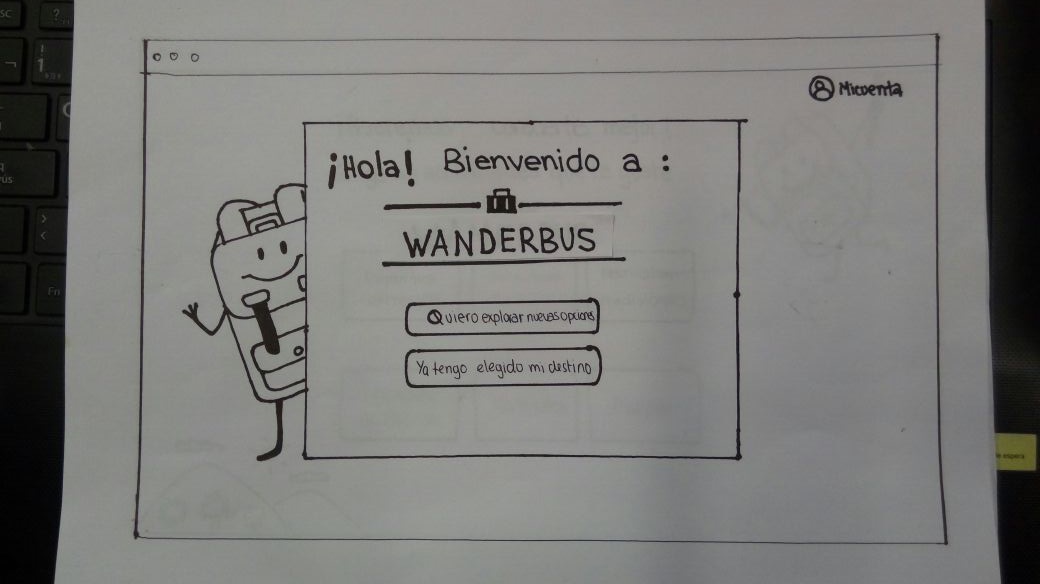 Micuenta
¡Hola! Bienvenido a :
WANDERBUS
Quiero explorar nuevas opciones
Ya tengo elegido mi destino